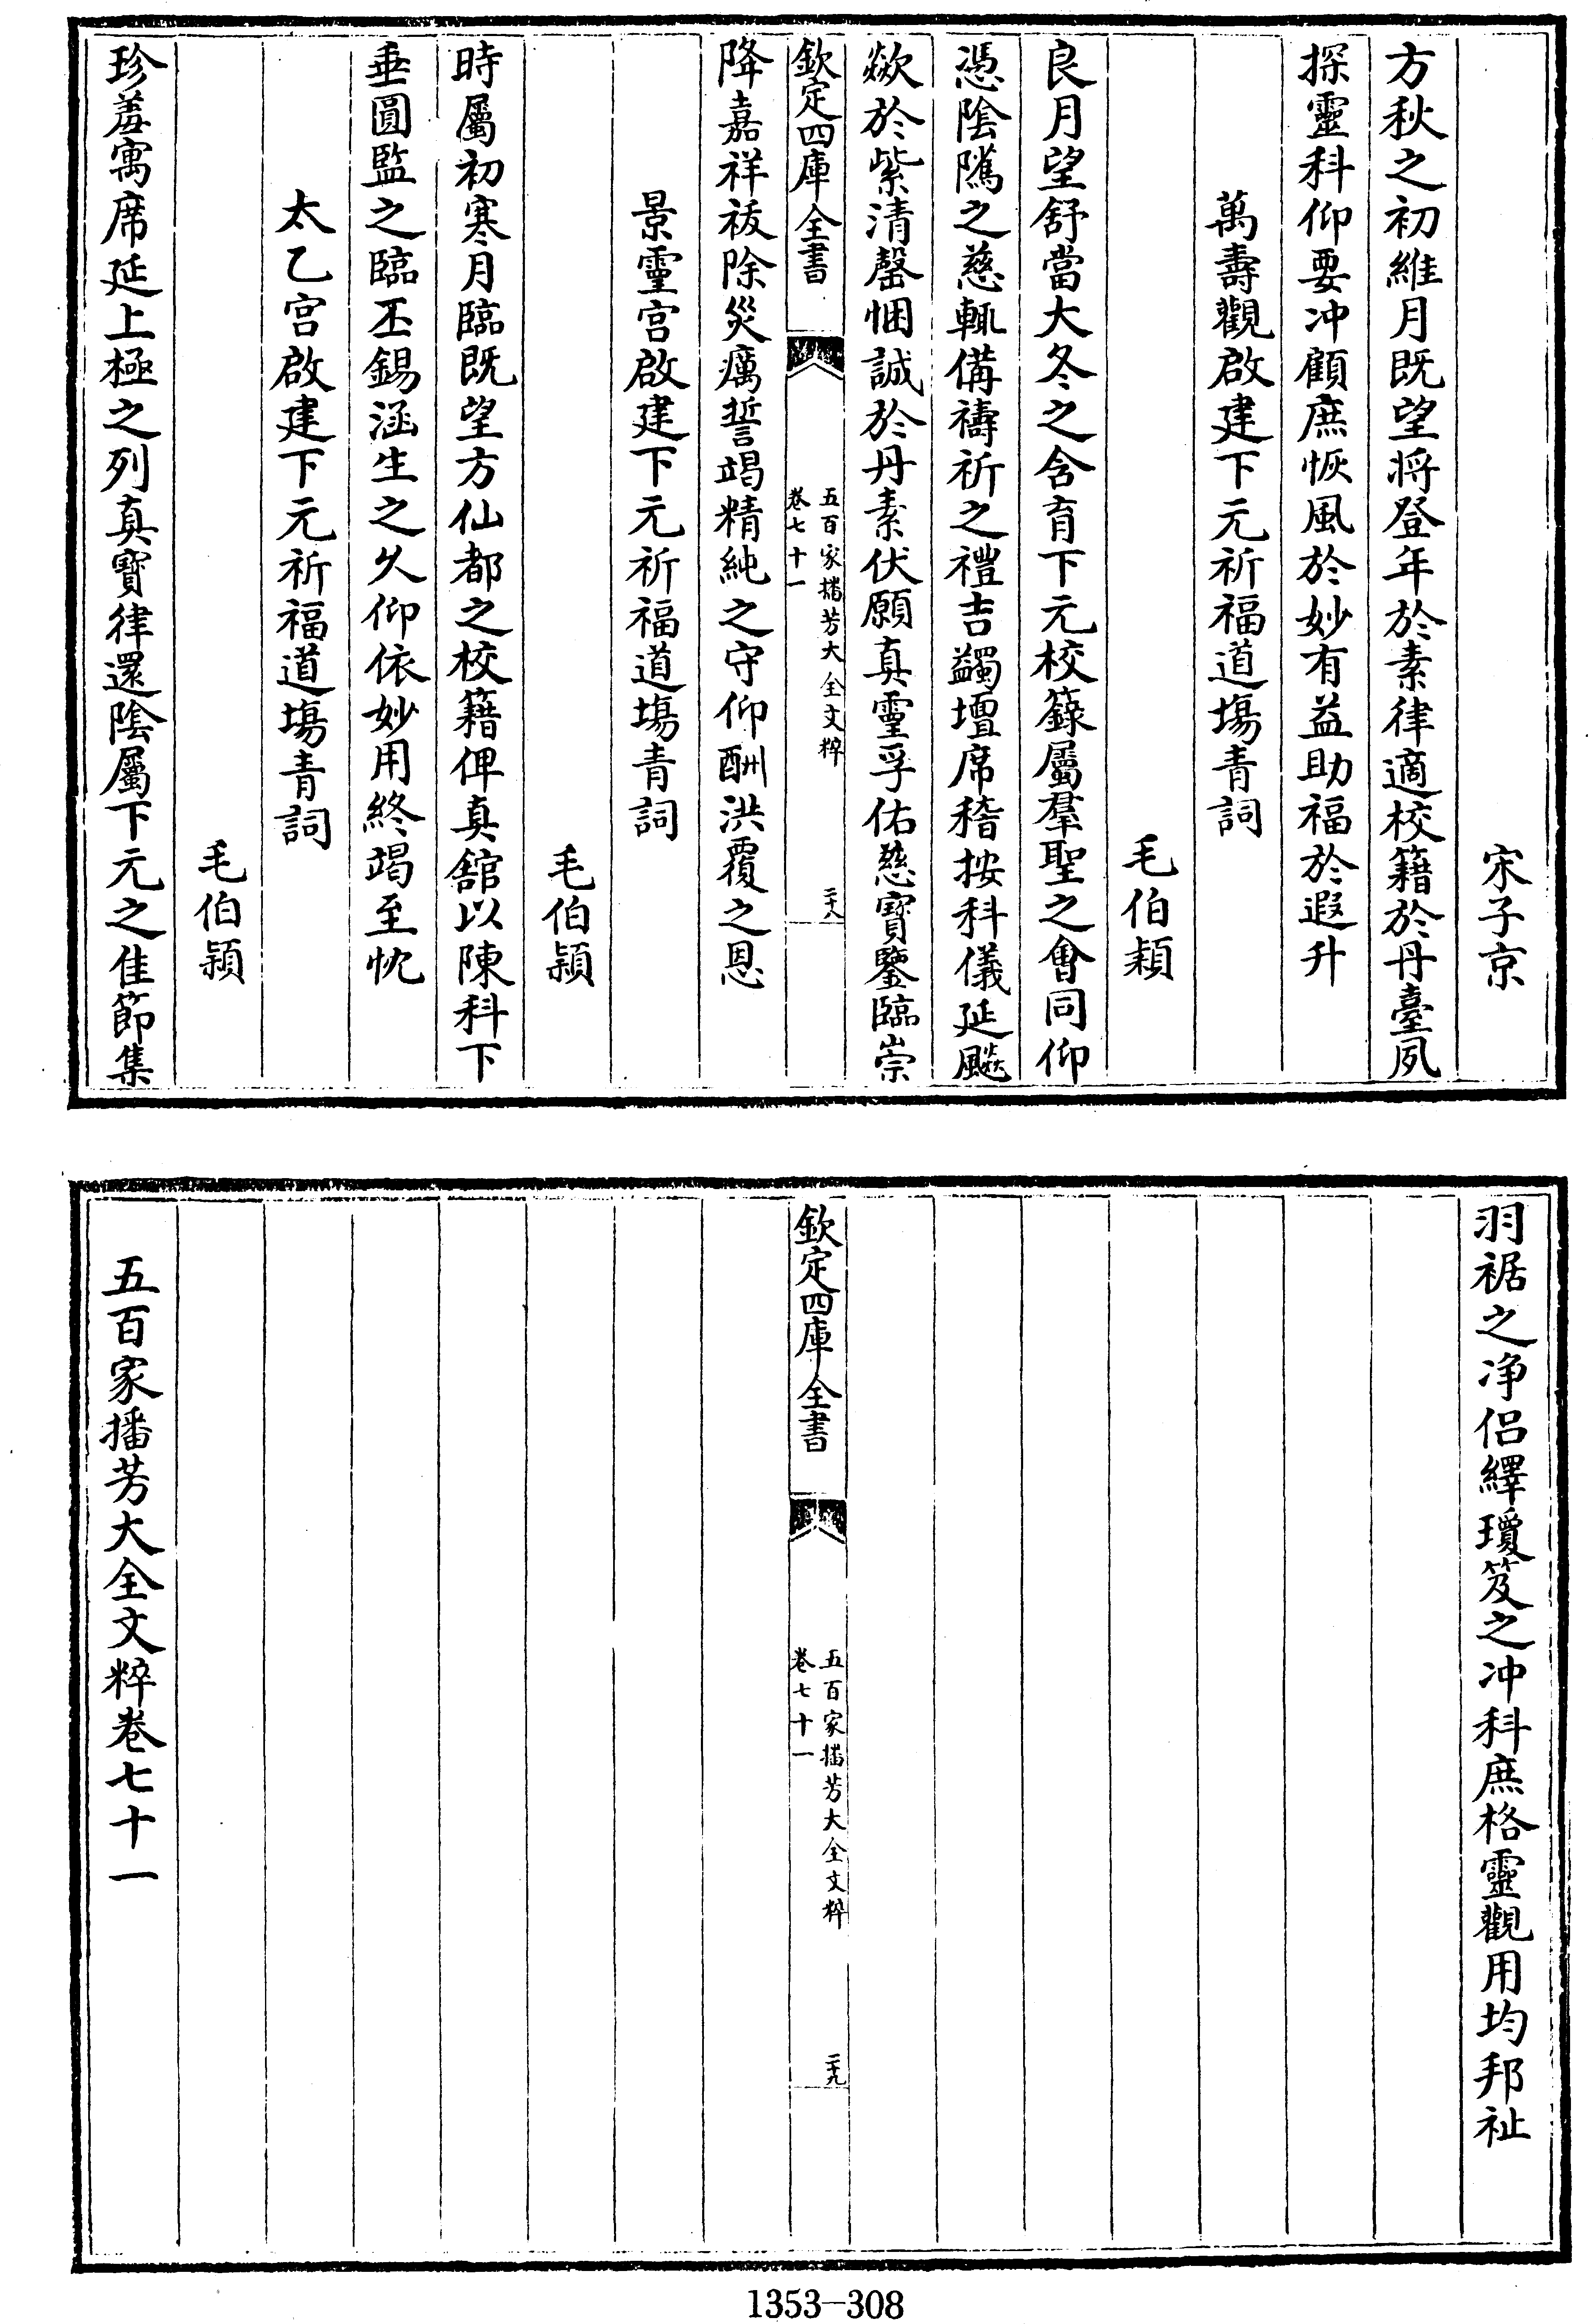 宋子京
方秋之初維月既望將登年於素律適校籍於丹臺夙
探靈科仰要冲顧庶恢風於妙有益助福於遐升
萬壽觀啟建下元祈福道場青詞
毛伯穎
良月望舒當大冬之含育下元校籙屬羣聖之會同仰
憑隂隲之慈輒備禱祈之禮吉蠲壇席稽按科儀延飈
歘於紫清罄悃誠於丹素伏願真靈孚佑慈寶鑒臨崇
欽定四庫全書
五百家播芳大全文粹
卷七十一
二十八
降嘉祥袚除災癘誓竭精純之守仰酬洪覆之恩
景靈宮啟建下元祈福道場青詞
毛伯穎
時屬初寒月臨既望方仙都之校籍俾真舘以陳科下
垂圓監之臨丕錫涵生之久仰依妙用終竭至忱
太乙宮啟建下元祈福道場青詞
毛伯穎
珍羞寓席延上極之列真寶律還隂屬下元之佳節集
羽裾之净侣繹瓊笈之冲科庶格靈觀用均邦祉
欽定四庫全書
五百家播芳大全文粹
卷七十一
二十九
五百家播芳大全文粹卷七十一
1353-308